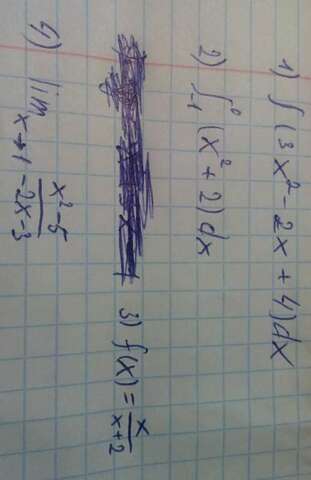 1) ∫(3x²-2x+4)dx
2) ∫₋₁⁰ (x²+2)dx
3) f(x) = x/(x+2)
4) lim x→1 (x²-5)/(-2x-3)